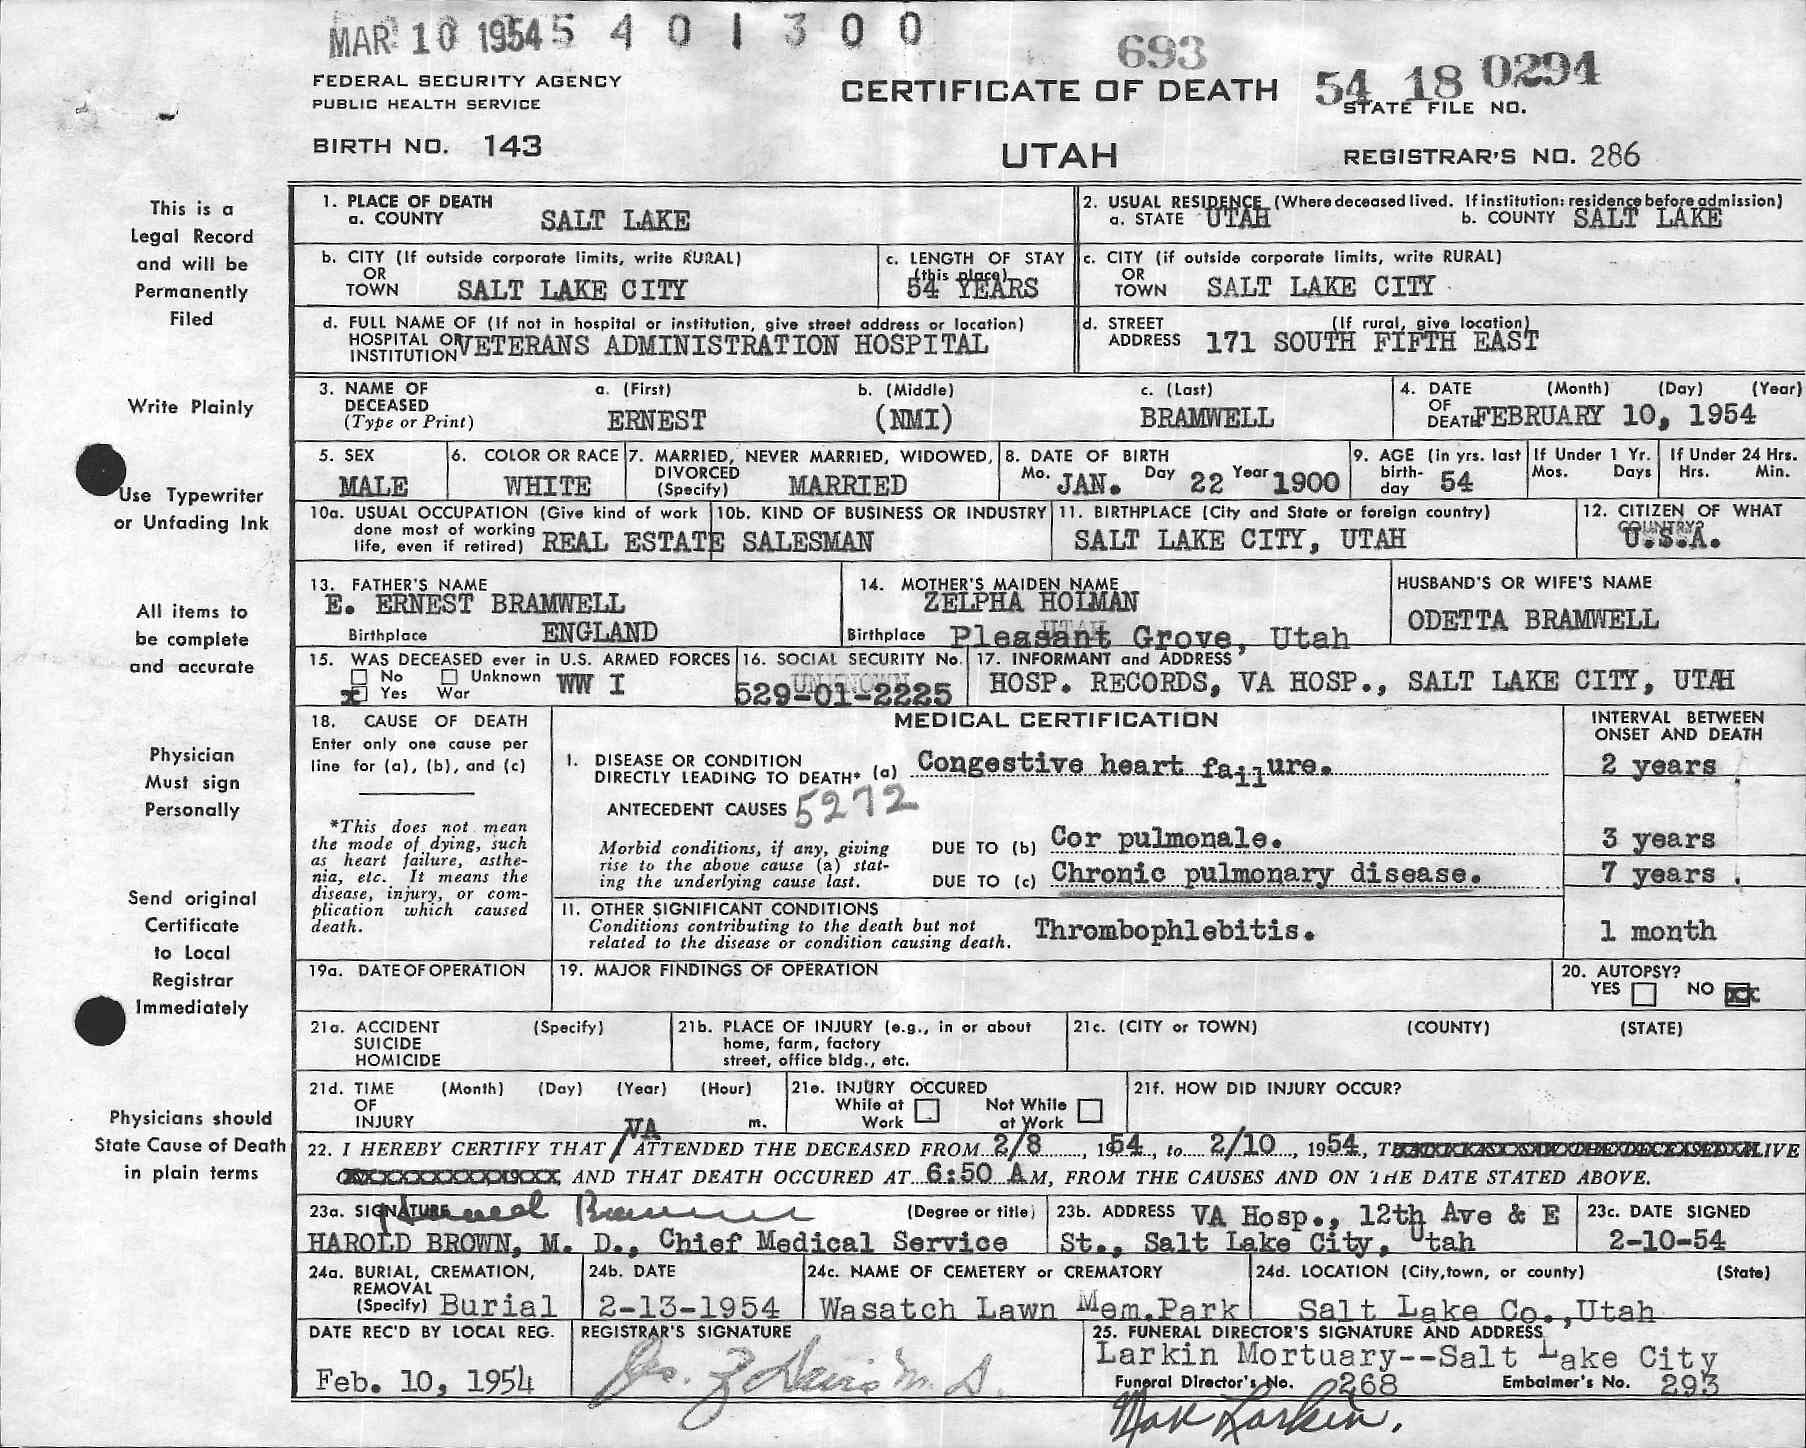 MAR 10 1954 5 4 0 1 3 0 0
693
FEDERAL SECURITY AGENCY
PUBLIC HEALTH SERVICE
CERTIFICATE OF DEATH
54 18 0294
STATE FILE NO.
BIRTH NO. 143
UTAH
REGISTRAR'S NO. 286
This is a
Legal Record
and will be
Permanently
Filed
Write Plainly
Use Typewriter
or Unfading Ink
All items to
be complete
and accurate
Physician
Must sign
Personally
Send original
Certificate
to Local
Registrar
Immediately
Physicians should
State Cause of Death
in plain terms
1. PLACE OF DEATH
a. COUNTY SALT LAKE
2. USUAL RESIDENCE (Where deceased lived. If institution: residence before admission)
a. STATE UTAH b. COUNTY SALT LAKE
b. CITY (If outside corporate limits, write RURAL)
OR
TOWN SALT LAKE CITY
c. LENGTH OF STAY
(this place)
54 YEARS
c. CITY (if outside corporate limits, write RURAL)
OR
TOWN SALT LAKE CITY
d. FULL NAME OF (If not in hospital or institution, give street address or location)
HOSPITAL O
INSTITUTION VETERANS ADMINISTRATION HOSPITAL
d. STREET (If rural, give location)
ADDRESS 171 SOUTH FIFTH EAST
3. NAME OF
DECEASED
(Type or Print)
a. (First) b. (Middle) c. (Last)
ERNEST (NMI) BRAMWELL
4. DATE (Month) (Day) (Year)
OF
DEATH FEBRUARY 10, 1954
5. SEX
MALE
6. COLOR OR RACE
WHITE
7. MARRIED, NEVER MARRIED, WIDOWED,
DIVORCED
(Specify) MARRIED
8. DATE OF BIRTH
Mo. JAN. Day 22 Year 1900
9. AGE (in yrs. last
birth-
day 54
If Under 1 Yr.
Mos. Days
If Under 24 Hrs.
Hrs. Min.
10a. USUAL OCCUPATION (Give kind of work
done most of working
life, even if retired) REAL ESTATE SALESMAN
10b. KIND OF BUSINESS OR INDUSTRY
11. BIRTHPLACE (City and State or foreign country)
SALT LAKE CITY, UTAH
12. CITIZEN OF WHAT
COUNTRY?
U.S.A.
13. FATHER'S NAME
E. ERNEST BRAMWELL
Birthplace ENGLAND
14. MOTHER'S MAIDEN NAME
ZELPHA HOLMAN
UTAH
Birthplace Pleasant Grove, Utah
HUSBAND'S OR WIFE'S NAME
ODETTA BRAMWELL
15. WAS DECEASED ever in U.S. ARMED FORCES
No Unknown WW I
x Yes War
16. SOCIAL SECURITY No.
UNKNOWN
529-01-2225
17. INFORMANT and ADDRESS
HOSP. RECORDS, VA HOSP., SALT LAKE CITY, UTAH
18. CAUSE OF DEATH
Enter only one cause per
line for (a), (b), and (c)
*This does not mean
the mode of dying, such
as heart failure, asthe-
nia, etc. It means the
disease, injury, or com-
plication which caused
death.
MEDICAL CERTIFICATION
INTERVAL BETWEEN
ONSET AND DEATH
I. DISEASE OR CONDITION
DIRECTLY LEADING TO DEATH* (a) Congestive heart failure. 2 years
ANTECEDENT CAUSES 5272
Morbid conditions, if any, giving
rise to the above cause (a) stat-
ing the underlying cause last.
DUE TO (b) Cor pulmonale. 3 years
DUE TO (c) Chronic pulmonary disease. 7 years
II. OTHER SIGNIFICANT CONDITIONS
Conditions contributing to the death but not
related to the disease or condition causing death. Thrombophlebitis. 1 month
19a. DATE OF OPERATION
19. MAJOR FINDINGS OF OPERATION
20. AUTOPSY?
YES NO XX
21a. ACCIDENT (Specify)
SUICIDE
HOMICIDE
21b. PLACE OF INJURY (e.g., in or about
home, farm, factory
street, office bldg., etc.
21c. (CITY or TOWN) (COUNTY) (STATE)
21d. TIME (Month) (Day) (Year) (Hour)
OF
INJURY m.
21e. INJURY OCCURED
While at Work Not While at Work
21f. HOW DID INJURY OCCUR?
VA
22. I HEREBY CERTIFY THAT / ATTENDED THE DECEASED FROM 2/8, 1954, to 2/10, 1954, ALIVE
AND THAT DEATH OCCURED AT 6:50 AM, FROM THE CAUSES AND ON THE DATE STATED ABOVE.
23a. SIGNATURE Harold Brown (Degree or title)
HAROLD BROWN, M. D., Chief Medical Service
23b. ADDRESS VA Hosp., 12th Ave & E
St., Salt Lake City, Utah
23c. DATE SIGNED
2-10-54
24a. BURIAL, CREMATION,
REMOVAL
(Specify) Burial
24b. DATE
2-13-1954
24c. NAME OF CEMETERY or CREMATORY
Wasatch Lawn Mem.Park
24d. LOCATION (City, town, or county) (State)
Salt Lake Co., Utah
DATE REC'D BY LOCAL REG.
Feb. 10, 1954
REGISTRAR'S SIGNATURE
Geo. Z Davis M. D.
25. FUNERAL DIRECTOR'S SIGNATURE AND ADDRESS
Larkin Mortuary--Salt Lake City
Funeral Director's No. 268 Embalmer's No. 293
Larkin.